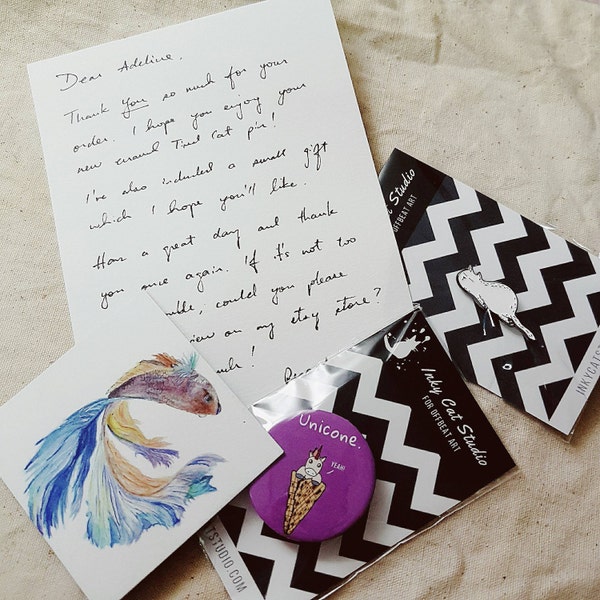 Dear Adeline,
Thank you so much for your
order. I hope you enjoy your
new enamel Tired Cat pin!
I've also included a small gift
which I hope you'll like.
Have a great day and thank
you once again. If it's not too
could you please
on my etsy store?
Studio
OFFBEAT ART
INKYCATS
Inky Cat Studio
FOR OFFBEAT ART
Unicone.
YEAH!
TSTUDIO.COM